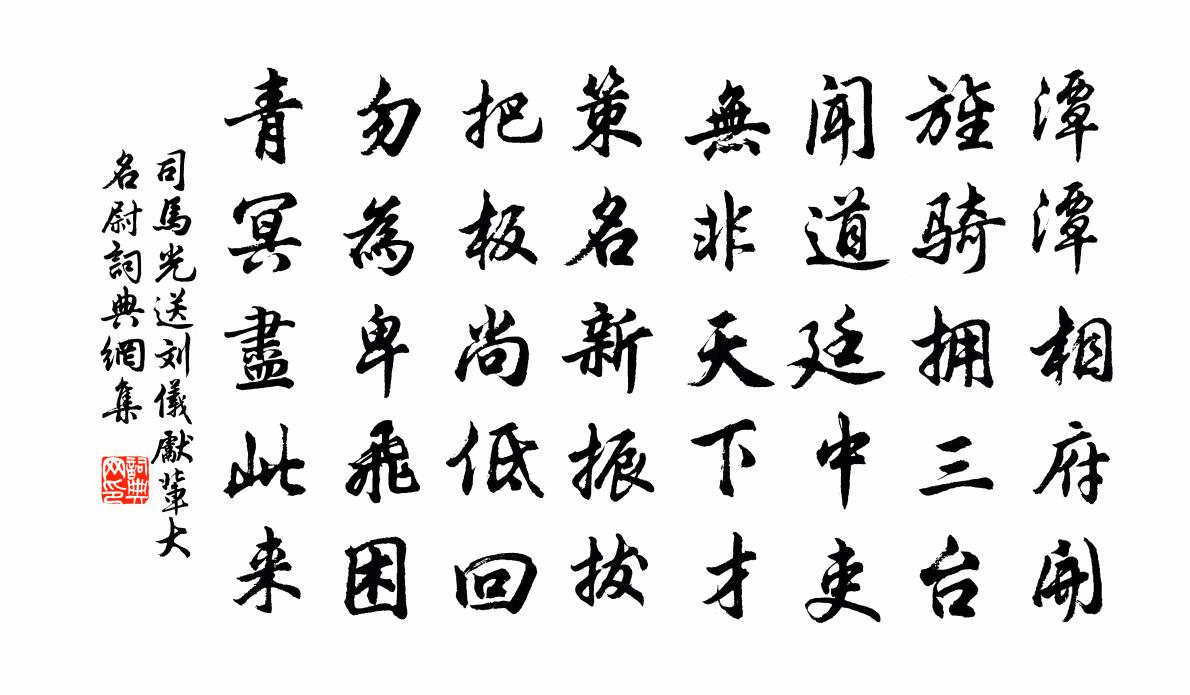 潭潭相府開
旌骑拥三台
闻道廷中吏
無非天下才
策名新振拔
把板尚低回
勿為卑飛困
青冥盡此来
司馬光送刘儀獻輩大
名尉詞典網集
詞典
网印